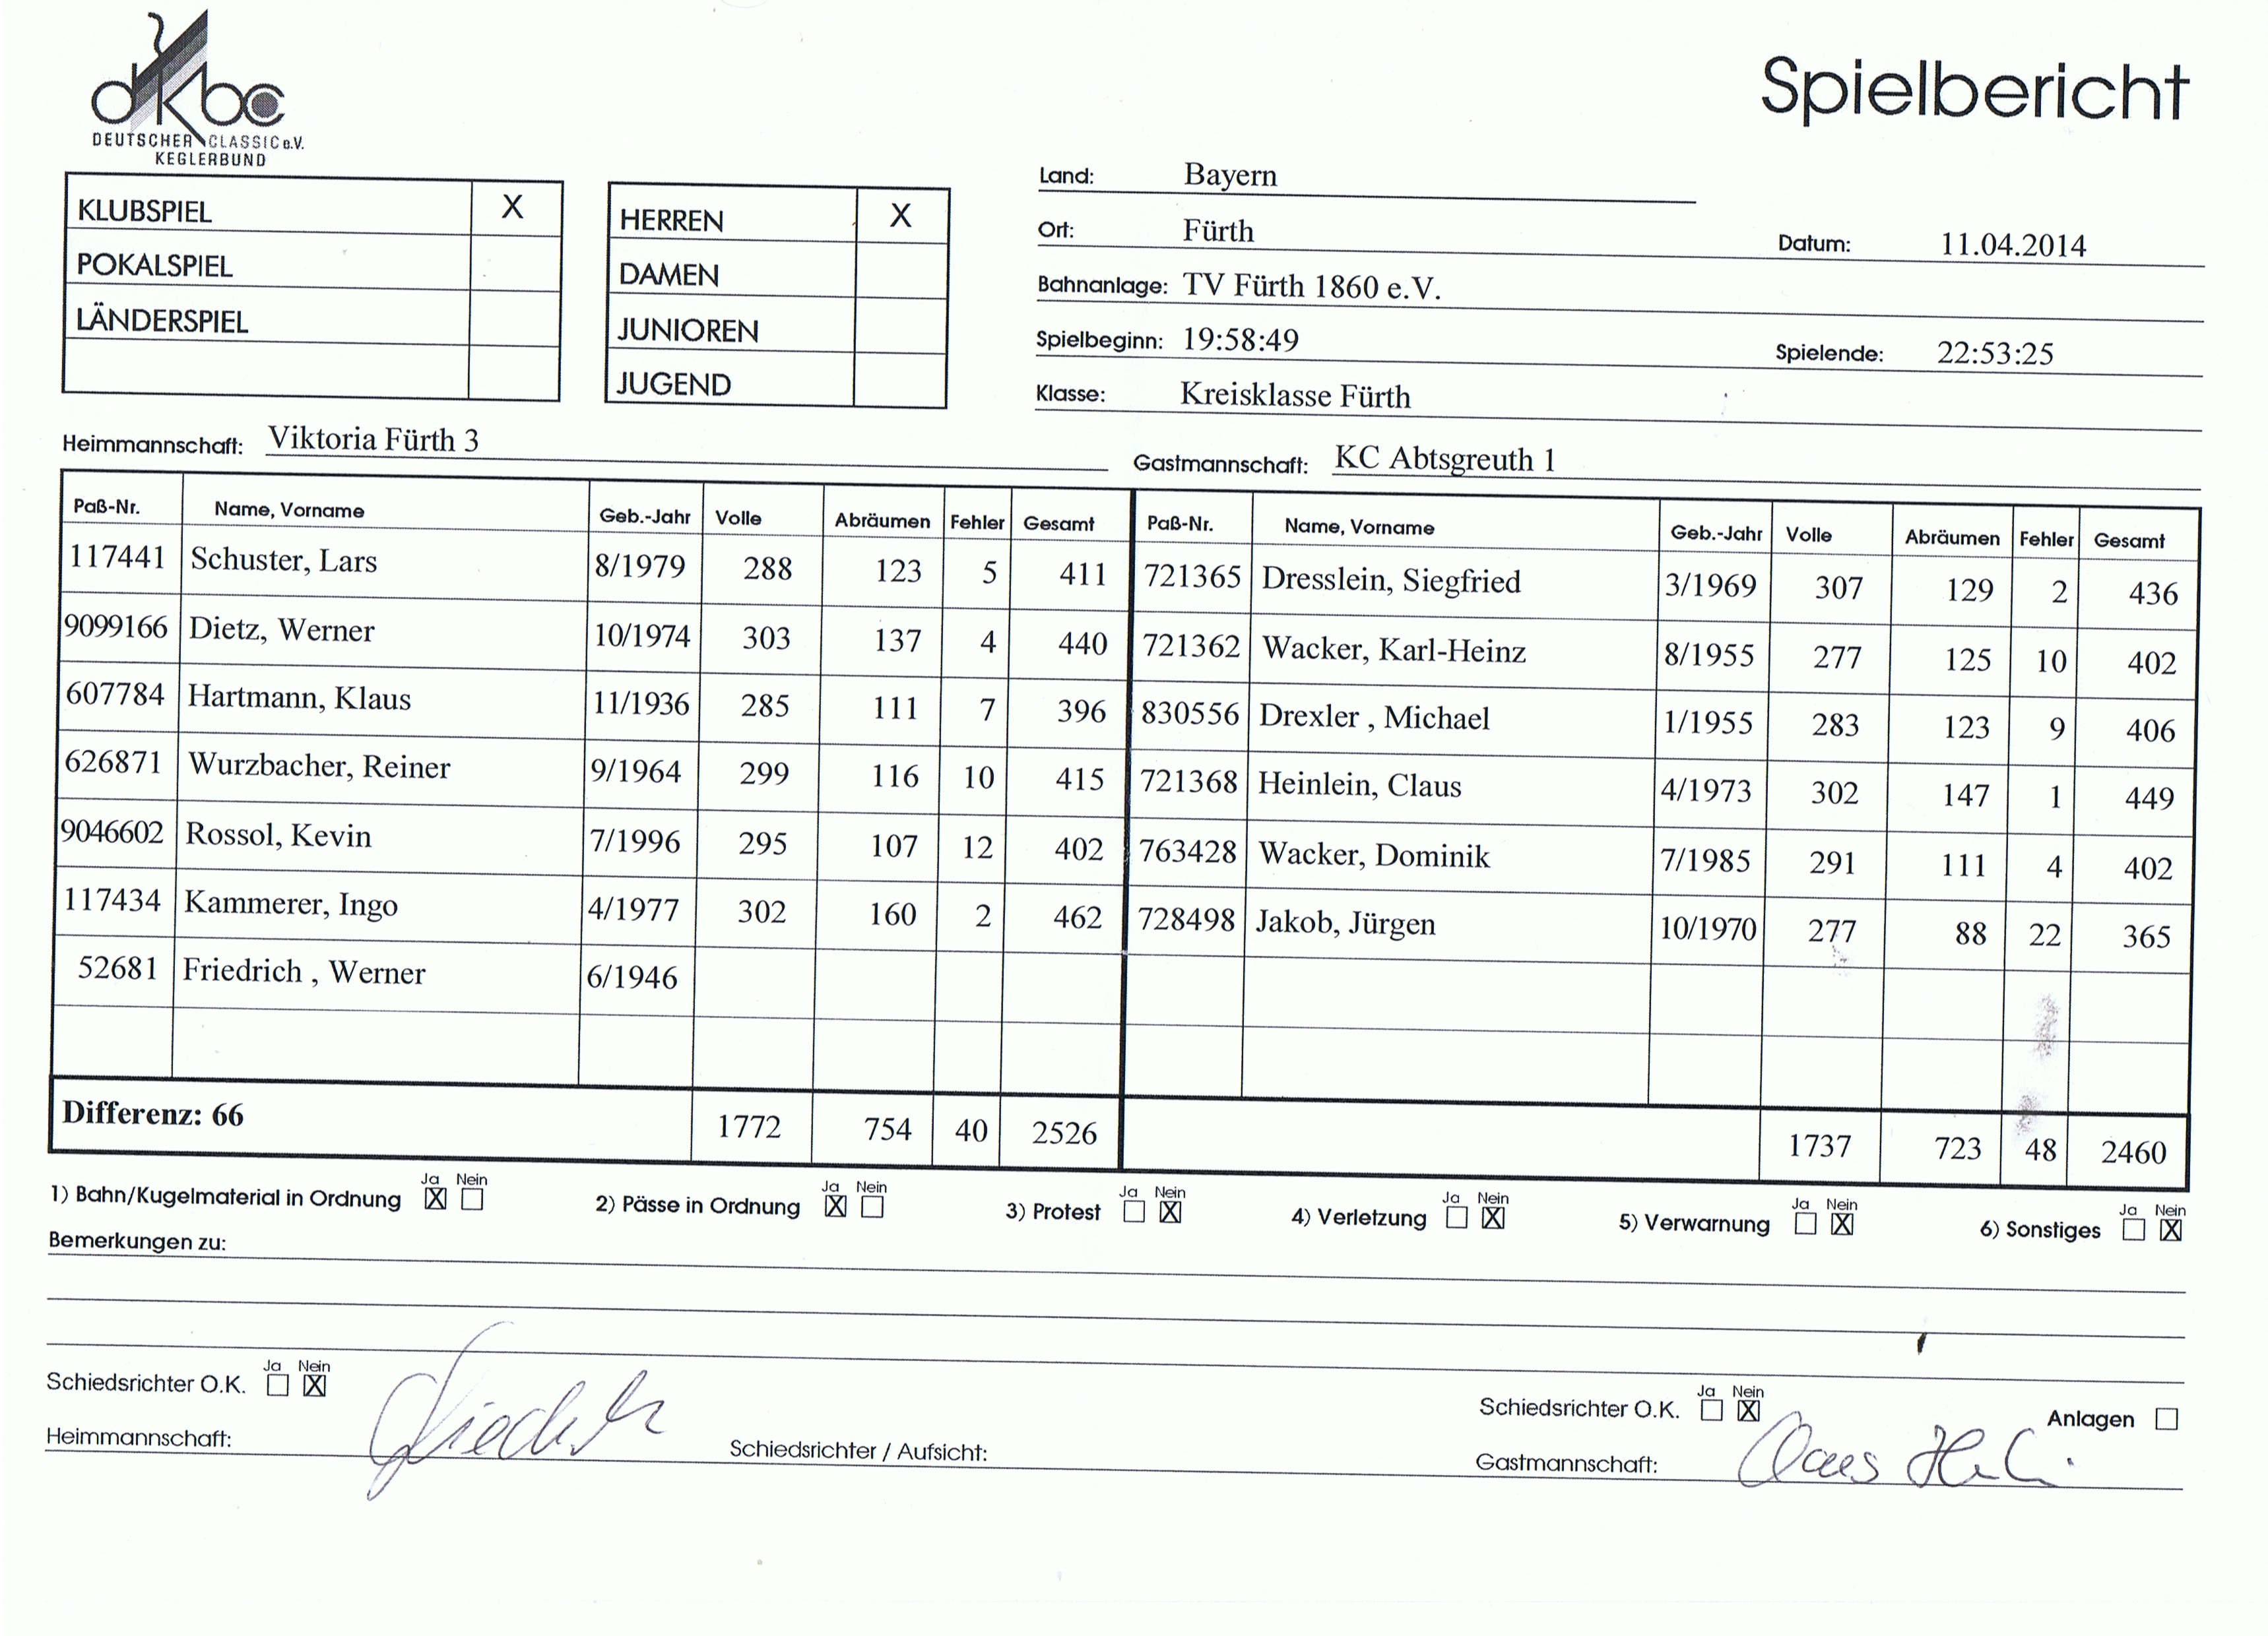 dkbc
DEUTSCHER CLASSIC e.V.
KEGLERBUND
Spielbericht
KLUBSPIEL X
POKALSPIEL
LÄNDERSPIEL
HERREN X
DAMEN
JUNIOREN
JUGEND
Land: Bayern
Ort: Fürth Datum: 11.04.2014
Bahnanlage: TV Fürth 1860 e.V.
Spielbeginn: 19:58:49 Spielende: 22:53:25
Klasse: Kreisklasse Fürth
Heimmannschaft: Viktoria Fürth 3 Gastmannschaft: KC Abtsgreuth 1
Paß-Nr. Name, Vorname Geb.-Jahr Volle Abräumen Fehler Gesamt Paß-Nr. Name, Vorname Geb.-Jahr Volle Abräumen Fehler Gesamt
117441 Schuster, Lars 8/1979 288 123 5 411 721365 Dresslein, Siegfried 3/1969 307 129 2 436
9099166 Dietz, Werner 10/1974 303 137 4 440 721362 Wacker, Karl-Heinz 8/1955 277 125 10 402
607784 Hartmann, Klaus 11/1936 285 111 7 396 830556 Drexler , Michael 1/1955 283 123 9 406
626871 Wurzbacher, Reiner 9/1964 299 116 10 415 721368 Heinlein, Claus 4/1973 302 147 1 449
9046602 Rossol, Kevin 7/1996 295 107 12 402 763428 Wacker, Dominik 7/1985 291 111 4 402
117434 Kammerer, Ingo 4/1977 302 160 2 462 728498 Jakob, Jürgen 10/1970 277 88 22 365
52681 Friedrich , Werner 6/1946
Differenz: 66 1772 754 40 2526 1737 723 48 2460
1) Bahn/Kugelmaterial in Ordnung Ja X Nein 2) Pässe in Ordnung Ja X Nein 3) Protest Ja Nein X 4) Verletzung Ja Nein X 5) Verwarnung Ja Nein X 6) Sonstiges Ja Nein X
Bemerkungen zu:
Schiedsrichter O.K. Ja Nein X Schiedsrichter O.K. Ja Nein X Anlagen
Heimmannschaft: Schiedsrichter / Aufsicht: Gastmannschaft: Claus